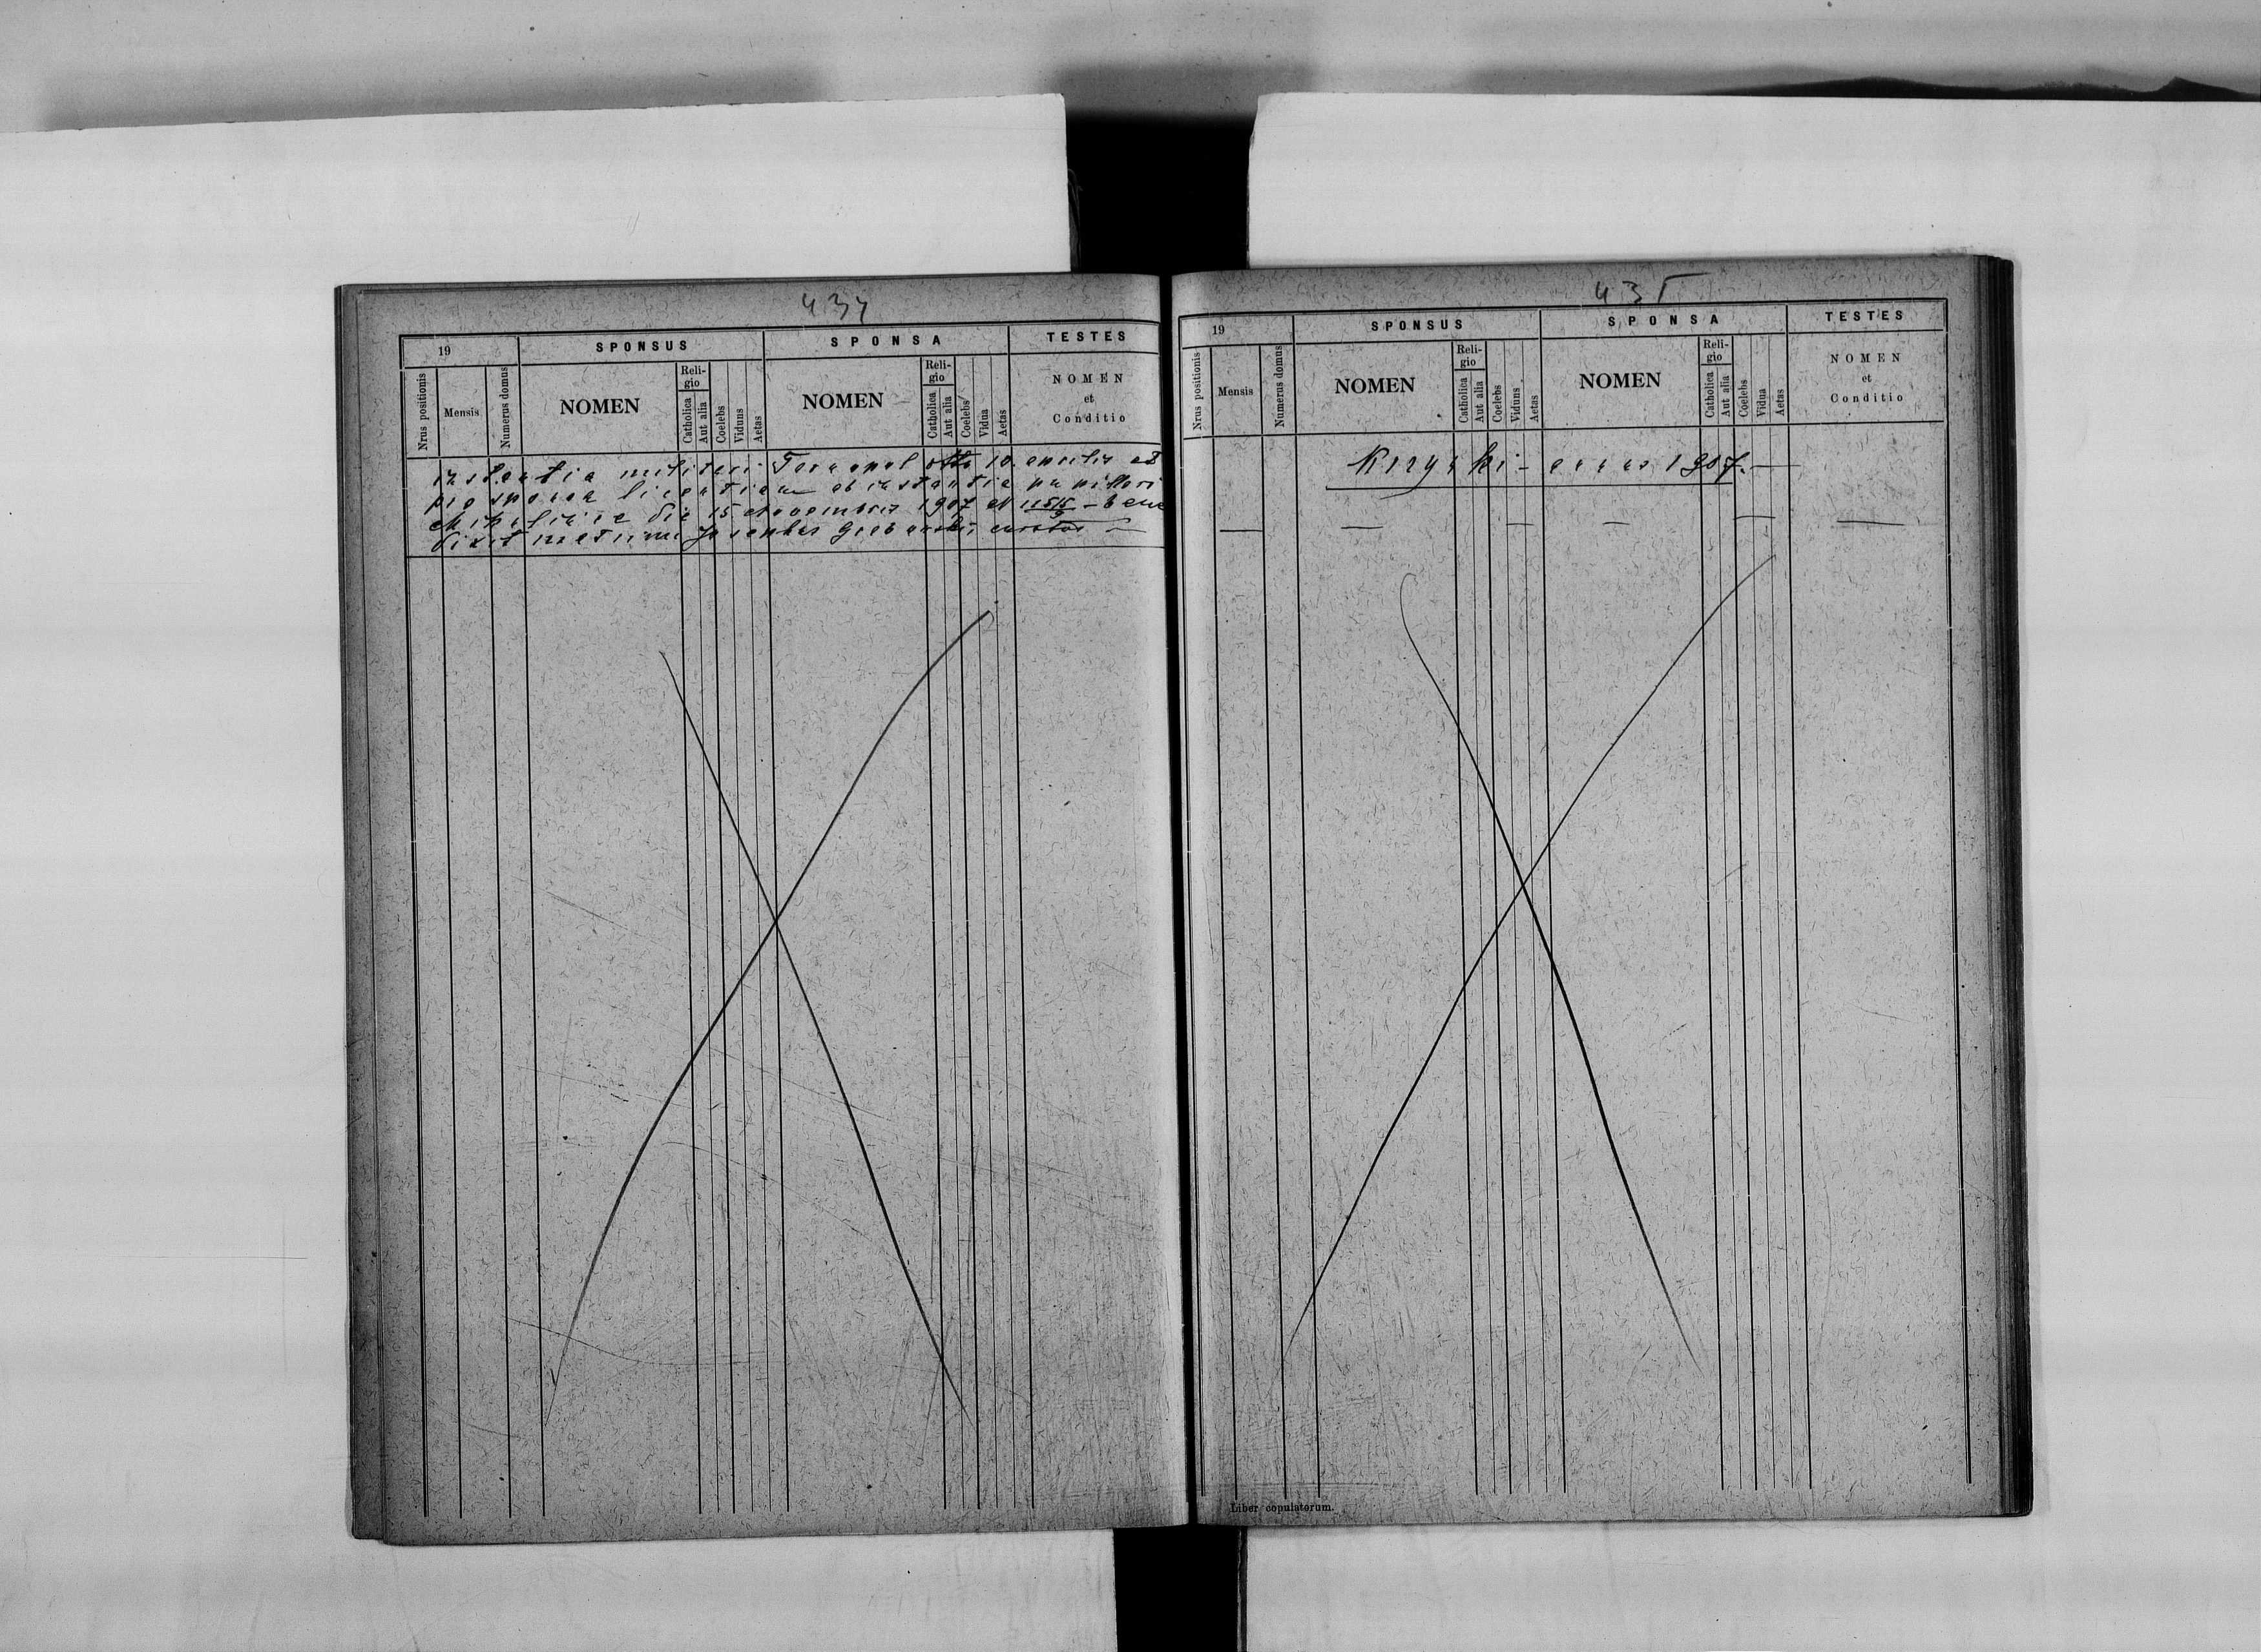 434
19
SPONSUS
SPONSA
TESTES
Nrus positionis
Mensis
Numerus domus
NOMEN
Reli-
gio
Catholica
Aut alia
Coelebs
Viduus
Aetas
NOMEN
Reli-
gio
Catholica
Aut alia
Coelebs
Vidua
Aetas
NOMEN
et
Conditio
instantia Tarnopol dtto 10. aprilis et
pro sponsa ab instantia
die 15 Novembris 1907 N
Josephus
435
19
SPONSUS
SPONSA
TESTES
Nrus positionis
Mensis
Numerus domus
NOMEN
Reli-
gio
Catholica
Aut alia
Coelebs
Viduus
Aetas
NOMEN
Reli-
gio
Catholica
Aut alia
Coelebs
Vidua
Aetas
NOMEN
et
Conditio
1907.
Liber copulatorum.